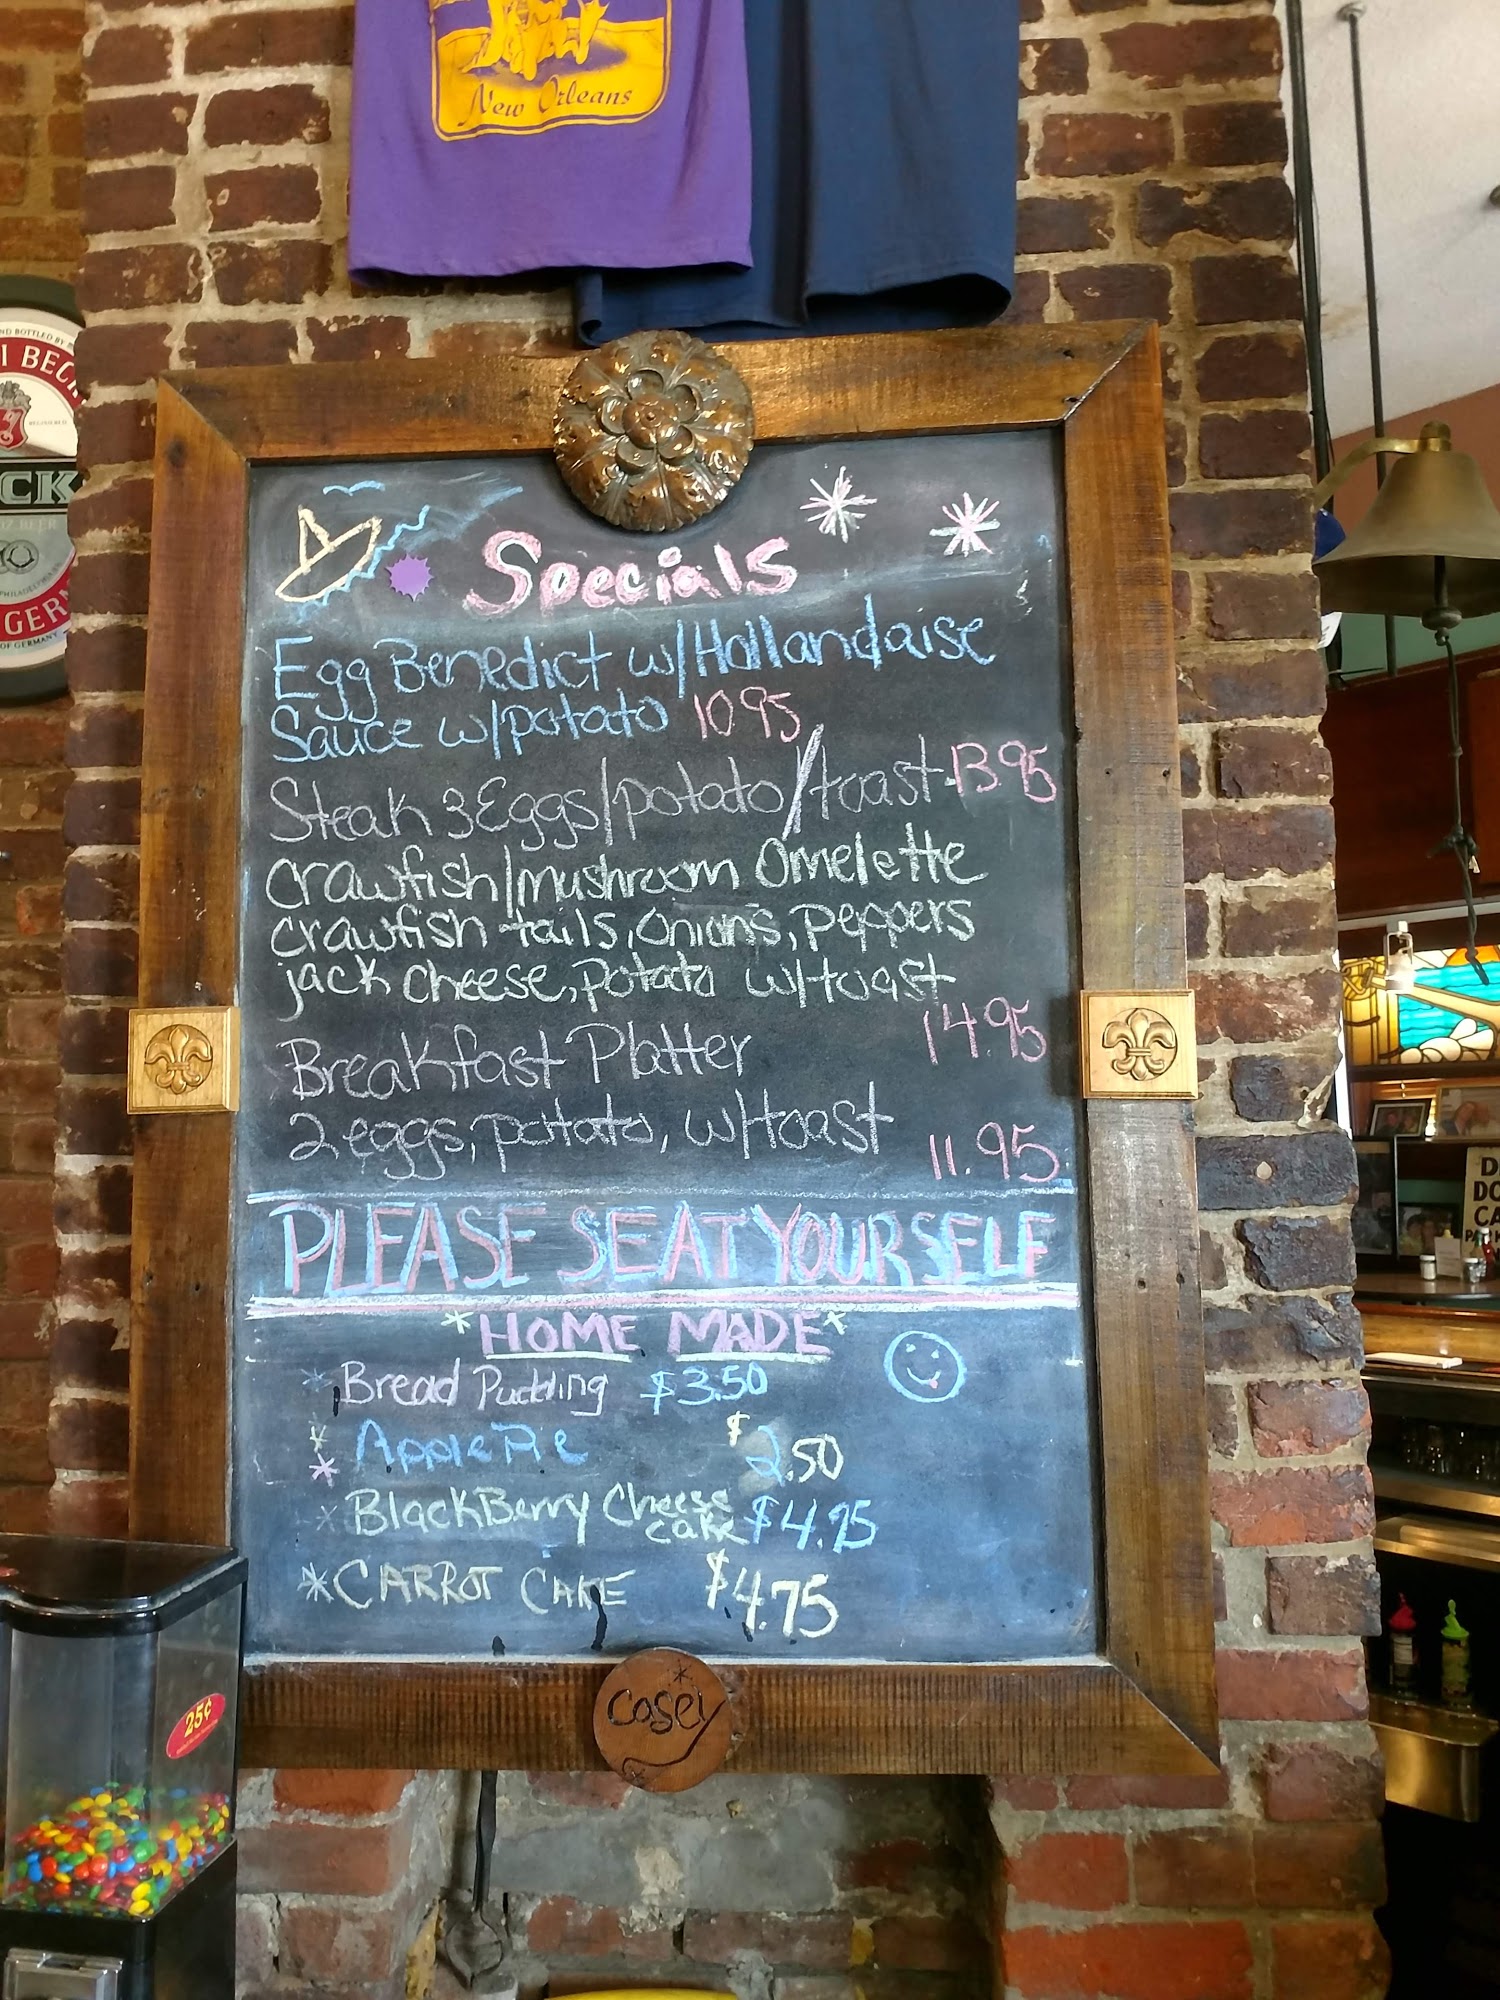 New Orleans
Specials
Egg Benedict w/Hollandaise
Sauce w/potato 10 95
Steak 3 Eggs/potato/toast 13 95
Crawfish/mushroom Omelette
crawfish tails, onions, peppers
jack cheese, potato w/toast
14.95
Breakfast Platter
2 eggs, potato, w/toast
11.95
PLEASE SEAT YOURSELF
*HOME MADE*
* Bread Pudding $3.50
* Apple Pie $2.50
*
* BlackBerry Cheese
cake $4.75
* CARROT CAKE $4.75
Casey
25¢
BOTTLED BY
BEC
CK
BEER
GER
OF GERMANY
D
DO
CA